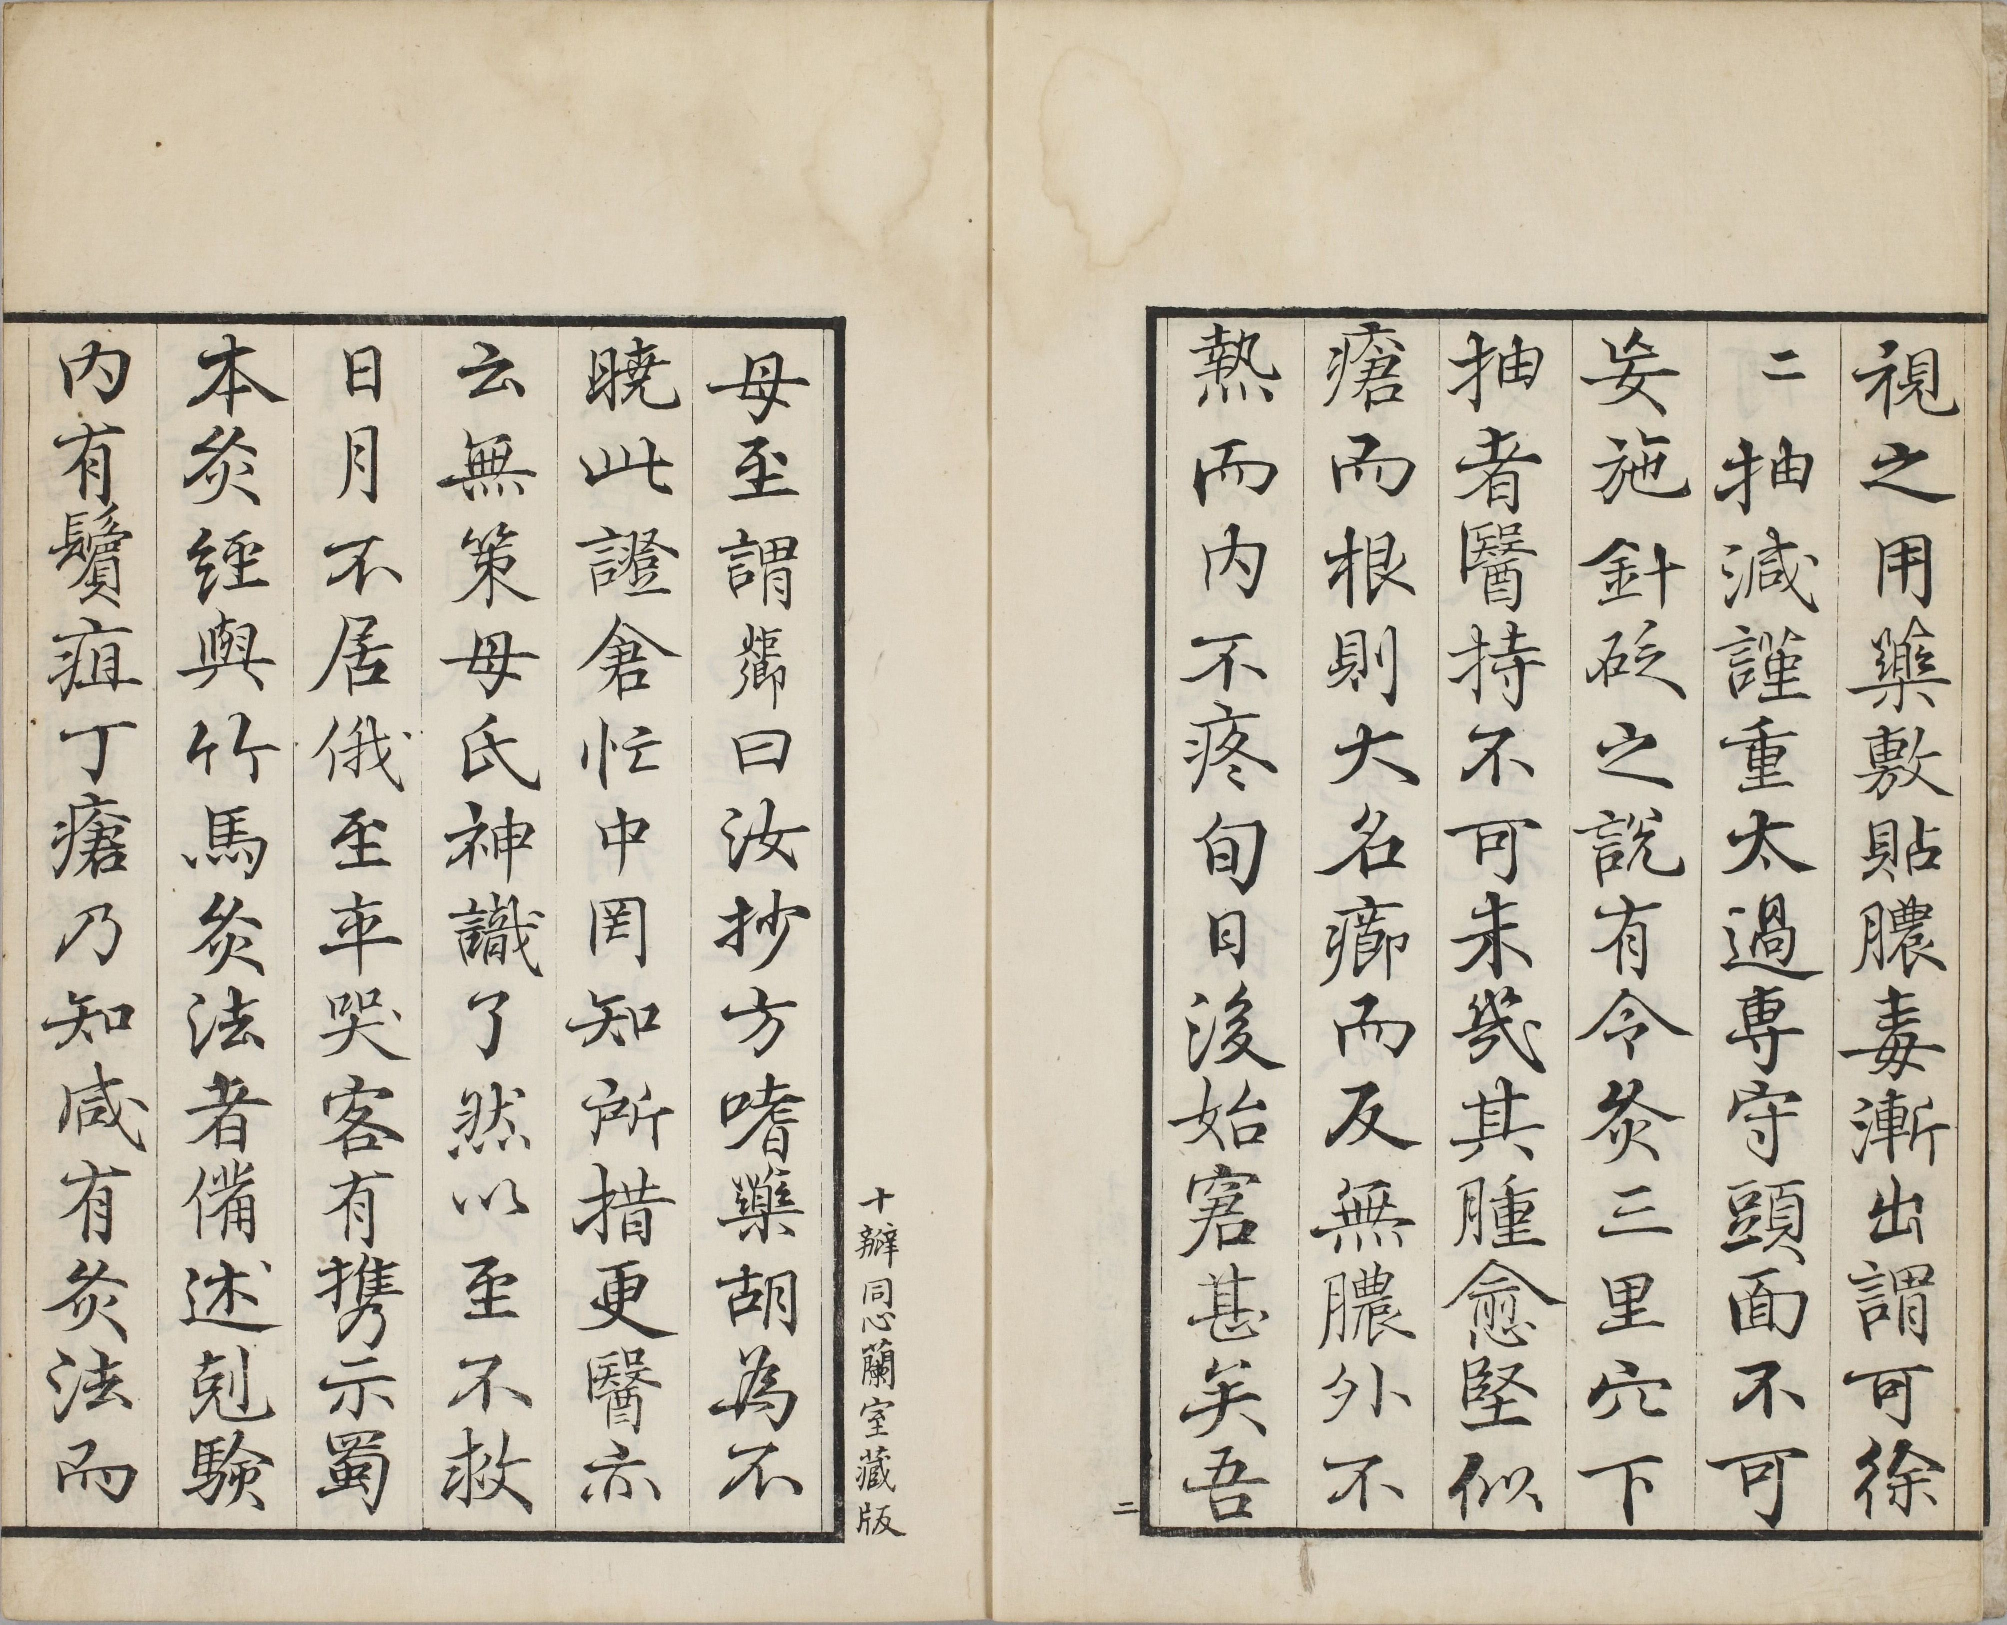 視之用藥敷貼膿毒漸出謂可徐
二抽減謹重太過専守頭面不可
妄施針砭之說有令灸三里穴下
抽者醫持不可未幾其腫愈堅似
瘡而根則大名癤而反無膿外不
熱而內不疼旬日後始窘甚矣吾
二
十瓣同心蘭室藏版
母至謂櫛曰汝抄方嗜藥胡為不
曉此證倉忙中罔知所措更醫亦
云無策母氏神識了然以至不救
日月不居俄至卒哭客有攜示蜀
本灸經與竹馬灸法者備述剋驗
內有鬢疽丁瘡乃知咸有灸法而